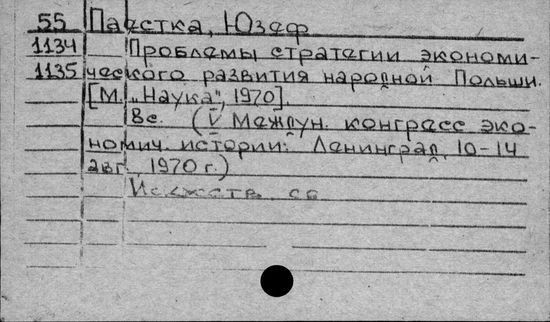 55 Паестка, Юзеф
1134 Проблемы стратегии экономи-
1135 ческого развития народной Польши.
[М., „Наука", 1970]
8с. (V Междун. конгресс эко-
номич. истории. Ленинград, 10-14
авг. 1970 г.)